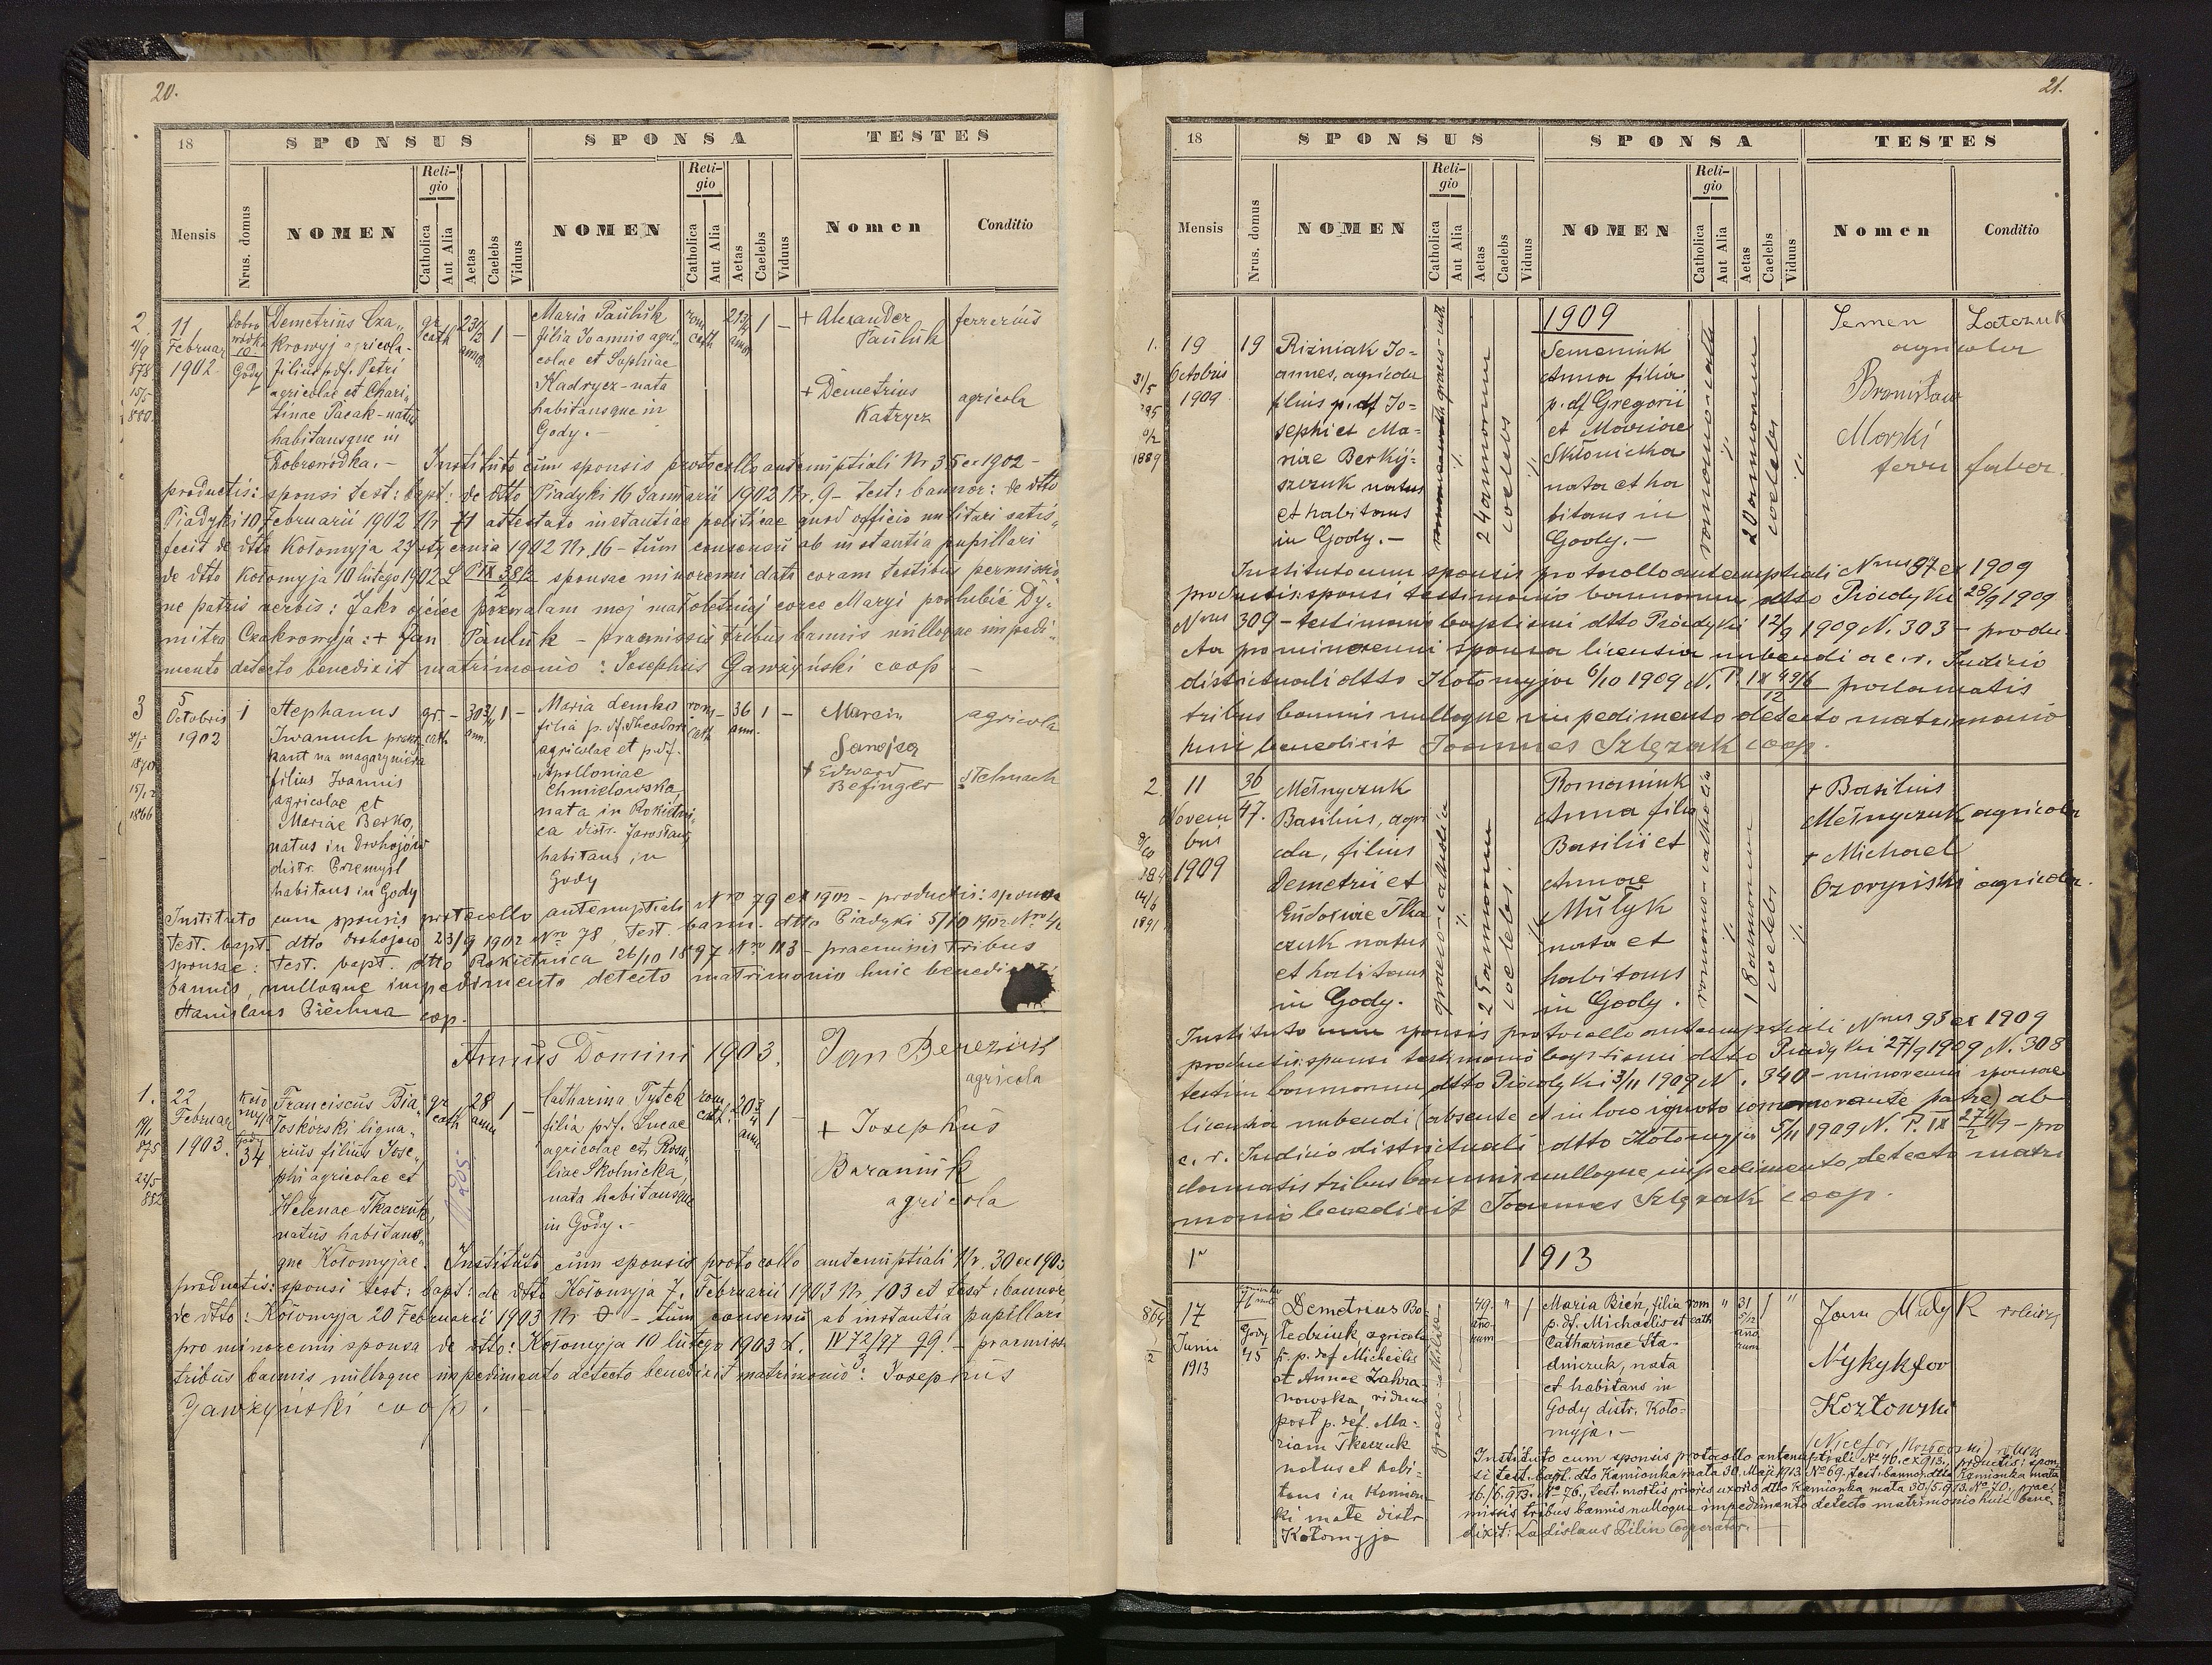 20.
18 SPONSUS SPONSA TESTES
Mensis Nrus. domus NOMEN Religio Catholica Aut Alia Aetas Caelebs Viduus NOMEN Religio Catholica Aut Alia Aetas Caelebs Viduus Nomen Conditio
2.
11
Februar
1902
Gody
Demetrius Cza„
krowyj agricola
filius pdf. Petri
agricolae et Chari„
tinae Pacak-natus
habitansque in
Dobrowódka.-
gr
cath
1 -
Maria Pauluk
filia Joannis agri„
colae et Sophiae
Kadrycz-nata
habitansque in
Gody.-
rom
cath
1 -
+ Alexander
Pauluk
ferrarius
+ Demetrius
Katrycz
agricola
Instituto cum sponsis protocollo antenuptiali Nr 35 ex 1902 -
productis: sponsi test: bapt: de dtto Piadyki 16 Januarii 1902 Nr. 9- test: bannor: de dtto
Piadyki 10 Februarii 1902 Nr 71 attestato instantiae politicae quod officio militari satis„
fecit de dtto Kołomyja 27 stycznia 1902 Nr. 16 - tum consensu ab instantia pupillari
de dtto Kołomyja 10 lutego 1902 L sponsae minorenni dato coram testibus permissio„
ne patris verbis: Jako ojciec pozwalam mej małoletniej corce Maryi poslubić Dy„
mitra Czakrowyja: + Jan Pauluk - praemissis tribus bannis nulloque impedi„
mento detecto benedixit matrimonio: Josephus Gawzyński coop -
3
5
Octobris
1902
1
Stephanus
Iwanuch
kant na magazynica
filius Ivannis
agricolae et
Mariae Berko,
natus in Drohojów
distr. Przemyśl
habitans in Gody
gr.
cath
1 -
Maria Demko
filia p. df. Theodori
agricolae et p.df.
Apolloniae
Chmielowska,
nata in Rokietni„
ca distr. Jarosław,
habitans in
Gody
rom
cath
36
ann.
1 -
Marcin
Sanojca
agricola
+ Edward
Befinger
stelmach
Instituto cum sponsis protocollo antenuptiali Nro 79 ex 1902 - productis: sponsi
test. bapt. dtto Drohojów 23/9 1902 Nro 78, test. bann. dtto Piadyki 5/10 1902 Nro
sponsae: test. bapt. dtto Rokietnica 26/10 1897 Nro 113 - praemissis tribus
bannis, nulloque impedimento detecto matrimonio huic benedixit
Stanislaus Piechura coop.
Annus Domini 1903.
1.
22
Februar
1903.
34
Franciscus Bia„
łoskórski ligna„
rius filius Jose„
phi agricolae et
Helenae Tkaczuk,
natus habitans„
que Kołomyjae.
gr
cath
28
ann
1 -
Catharina Tytek
filia pdf. Lucae
agricolae et Rosa„
liae Skolnicka,
nata habitansque
in Gody.-
rom
cath.
1 -
Jan Bereziuk
agricola
+ Josephus
Baraniuk
agricola
Instituto cum sponsis protocollo antenuptiali Nr. 30 ex 1903
productis: sponsi test: bapt: de dtto Kołomyja 7. Februarii 1903 Nr 103 et test: bannor
de dtto: Kołomyja 20 Februarii 1903 Nr - tum consensu ab instantia pupillari
pro minorenni sponsa de dtto: Kołomyja 10 lutego 1903 L. praemissis
tribus bannis nulloque impedimento detecto benedixit matrimonio: Josephus
Gawżyński coop. -
21.
18 SPONSUS SPONSA TESTES
Mensis Nrus. domus NOMEN Religio Catholica Aut Alia Aetas Caelebs Viduus NOMEN Religio Catholica Aut Alia Aetas Caelebs Viduus Nomen Conditio
1909
1.
19
Octobris
1909
19
Rizniak Jo=
annes, agricola
filius p. df Jo=
sephi et Ma=
riae Berkij=
szczuk natus
et habitans
in Gody.-
24 annorum
coelebs
Semeniuk
Anna filia
p. df Gregorii
et Mariae
Skłonicka
nata et ha
bitans in
Gody.-
romano-cath
20 annorum
coelebs
Semen Łatczuk
agricola
Bronisław
Morski
ferri faber.
Instituto cum sponsis protocollo antenuptiali Nrus 87 ex 1909
productis: sponsi testimonio bannorum dtto Piadyki 28/9 1909
Nrus 309 - testimonio baptismi dtto Piadyki 12/9 1909 N. 303 - produ
cta pro minorenni sponsa licentia nubendi a c. r. Iudicio
districtuali dtto Kołomyja 6/10 1909 N. proclamatis
tribus bannis nulloque impedimento detecto matrimonio
huic benedixit Joannes Szlęzak coop.
2.
11
Novem
bris
1909
36
47.
Mełnyczuk
Basilius, agri
cola, filius
Demetrii et
Eudociae Tka
czuk natus
et habitans
in Gody.
graeco-catholica
25 annorum
coelebs.
Romaniuk
Anna filia
Basilii et
Annae
Mułyk
nata et
habitans
in Gody.
romano-catholica
18 annorum
coelebs
+ Basilius
Mełnyczuk agricola
+ Michael
Ozoryński agricola.
Instituto cum sponsis protocollo antenuptiali Nrus 93 ex 1909
productis: sponsi testimonio baptismi dtto Piadyki 27/9 1909 N. 308
testim bannorum dtto Piadyki 3/11 1909 N. 340 - minorenni sponsae
licentia nubendi (absente et in loco ignoto commorante patre) ab
c. r. Iudicio districtuali dtto Kołomyja 5/11 1909 N. P. IX - pro
clamatis tribus bannis nulloque impedimento detecto matri
monio benedixit Joannes Szlęzak coop.
1913
17
Junii
1913
Gody
45
Demetrius Bo-
ledziuk agricola
f. p. def Michaelis
et Annae Zahra
nowska, viduus
post p. def. Ma-
riam Tkaczuk
natus et habi-
tans in Kamion-
ki małe distr
Kołomyja
graeco-catholica
49.
anno
rum
" 1
Maria Bień, filia
p. df. Michaelis et
Catharinae Sta-
dniczuk, nata
et habitans in
Gody distr. Koło=
myja.-
rom
cath
"
31
5/12
anno
rum
1 "
Jan Mudyk rolnik
Nykyfor
Kozłowski
Instituto cum sponsis protocollo antenuptiali No 46. ex 913. productis: spon
si test. bapt. dto Kamionka mała 30. Maji 1913. No 69, test. bannor. dtto Kamionka mała
16./6. 913. No 76., test. mortis prioris uxoris dtto Kamionka mała 30/5. 913. No 70., prae=
missis tribus bannis nulloque impedimento detecto matrimonio huic bene-
dixit: Ladislaus Bilin Cooperator.-